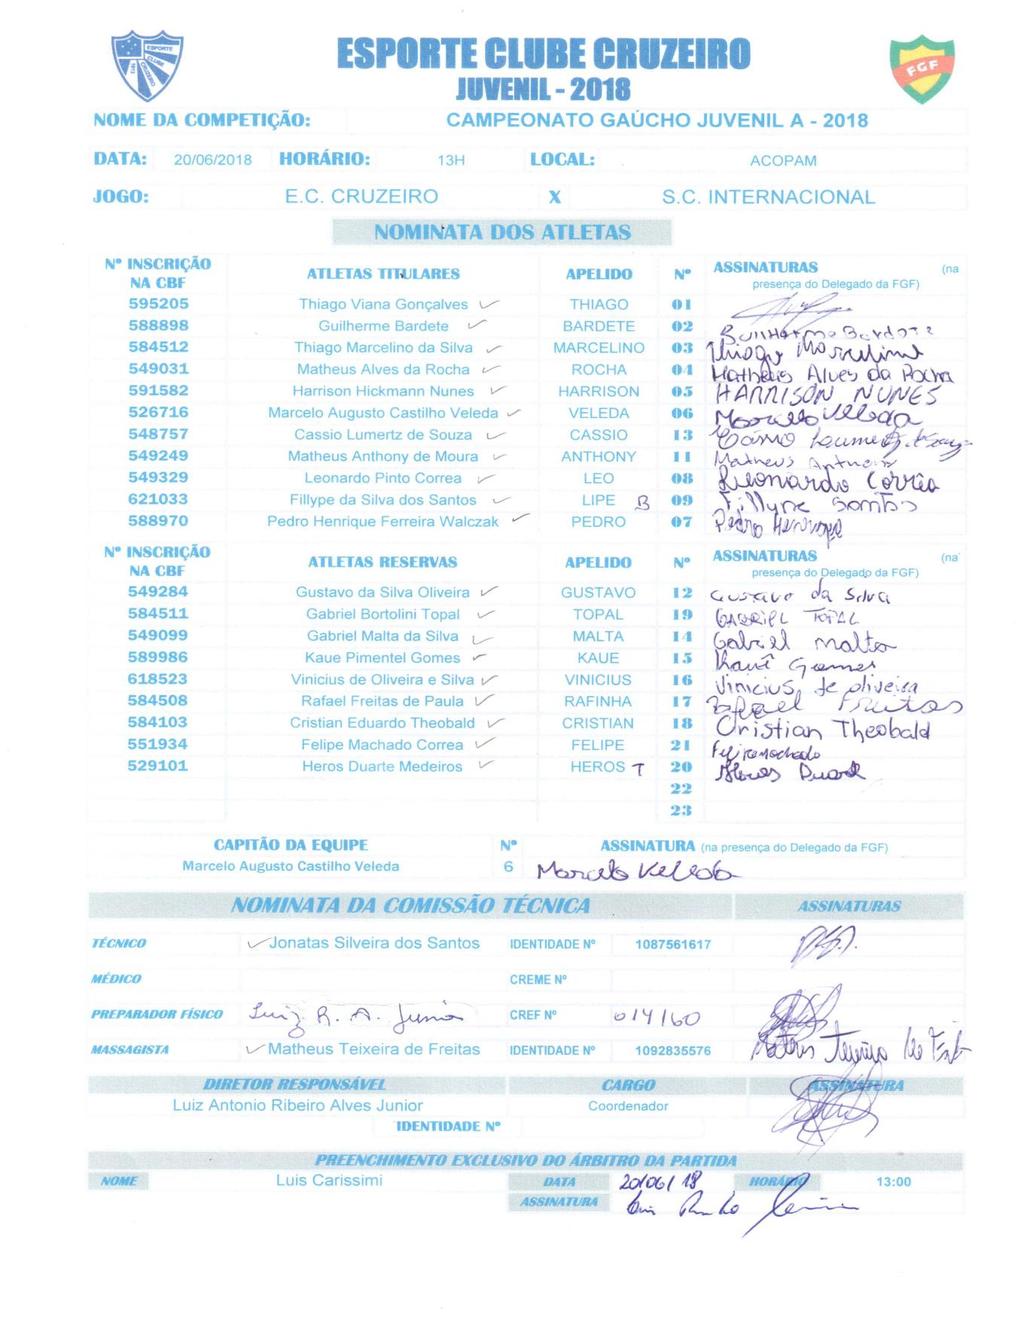 ESPORTE CLUBE CRUZEIRO
JUVENIL - 2018
FGF
NOME DA COMPETIÇÃO: CAMPEONATO GAÚCHO JUVENIL A - 2018
DATA: 20/06/2018 HORÁRIO: 13H LOCAL: ACOPAM
JOGO: E.C. CRUZEIRO X S.C. INTERNACIONAL
NOMINATA DOS ATLETAS
Nº INSCRIÇÃO NA CBF ATLETAS TITULARES APELIDO Nº ASSINATURAS (na presença do Delegado da FGF)
595205 Thiago Viana Gonçalves THIAGO 01
588898 Guilherme Bardete BARDETE 02 Guilherme Bardete
584512 Thiago Marcelino da Silva MARCELINO 03 Thiago Marcelino
549031 Matheus Alves da Rocha ROCHA 04 Matheus Alves da Rocha
591582 Harrison Hickmann Nunes HARRISON 05 HARRISON NUNES
526716 Marcelo Augusto Castilho Veleda VELEDA 06 Marcelo Veleda
548757 Cassio Lumertz de Souza CASSIO 13 Cássio Lumertz de Souza
549249 Matheus Anthony de Moura ANTHONY 11 Matheus Anthony
549329 Leonardo Pinto Correa LEO 08 Leonardo Corrêa
621033 Fillype da Silva dos Santos LIPE B 09 Fillype Santos
588970 Pedro Henrique Ferreira Walczak PEDRO 07 Pedro Henrique
Nº INSCRIÇÃO NA CBF ATLETAS RESERVAS APELIDO Nº ASSINATURAS (na presença do Delegado da FGF)
549284 Gustavo da Silva Oliveira GUSTAVO 12 Gustavo da Silva
584511 Gabriel Bortolini Topal TOPAL 19 GABRIEL TOPAL
549099 Gabriel Malta da Silva MALTA 14 Gabriel Malta
589986 Kaue Pimentel Gomes KAUE 15 Kauê Gomes
618523 Vinicius de Oliveira e Silva VINICIUS 16 Vinicius de oliveira
584508 Rafael Freitas de Paula RAFINHA 17 Rafael Freitas
584103 Cristian Eduardo Theobald CRISTIAN 18 Cristian Theobald
551934 Felipe Machado Correa FELIPE 21 Felipe Machado
529101 Heros Duarte Medeiros HEROS T 20 Heros Duarte
22
23
CAPITÃO DA EQUIPE Nº ASSINATURA (na presença do Delegado da FGF)
Marcelo Augusto Castilho Veleda 6 Marcelo Veleda
NOMINATA DA COMISSÃO TÉCNICA ASSINATURAS
TÉCNICO Jonatas Silveira dos Santos IDENTIDADE Nº 1087561617
MÉDICO CREME Nº
PREPARADOR FÍSICO Luiz R. A. Junior CREF Nº 014160
MASSAGISTA Matheus Teixeira de Freitas IDENTIDADE Nº 1092835576
DIRETOR RESPONSÁVEL CARGO ASSINATURA
Luiz Antonio Ribeiro Alves Junior Coordenador
IDENTIDADE Nº
PREENCHIMENTO EXCLUSIVO DO ÁRBITRO DA PARTIDA
NOME Luis Carissimi DATA 20/06/18 HORÁRIO 13:00
ASSINATURA